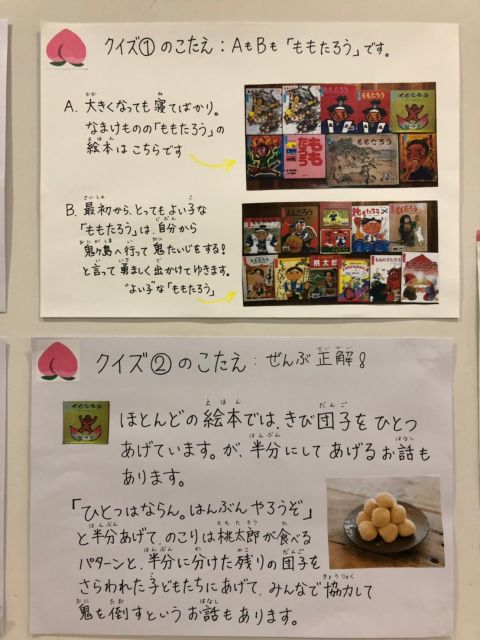 クイズ①のこたえ：AもBも「ももたろう」です。
A. 大きくなっても寝てばかり。
なまけものの「ももたろう」の
絵本はこちらです
B. 最初から、とってもよい子な
「ももたろう」は、自分から
鬼ヶ島へ行って鬼たいじをする!
と言って勇ましく出かけてゆきます。
"よい子"な「ももたろう」
クイズ②のこたえ：ぜんぶ正解!
ほとんどの絵本では、きび団子をひとつ
あげています。が、半分にしてあげるお話も
あります。
「ひとつはならん。はんぶんやろうぞ」
と半分あげて、のこりは桃太郎が食べる
パターンと、半分に分けた残りの団子を
さらわれた子どもたちにあげて、みんなで協力して
鬼を倒すというお話もあります。